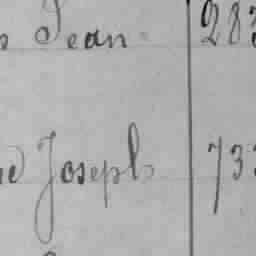 Jean 283
Joseph 733